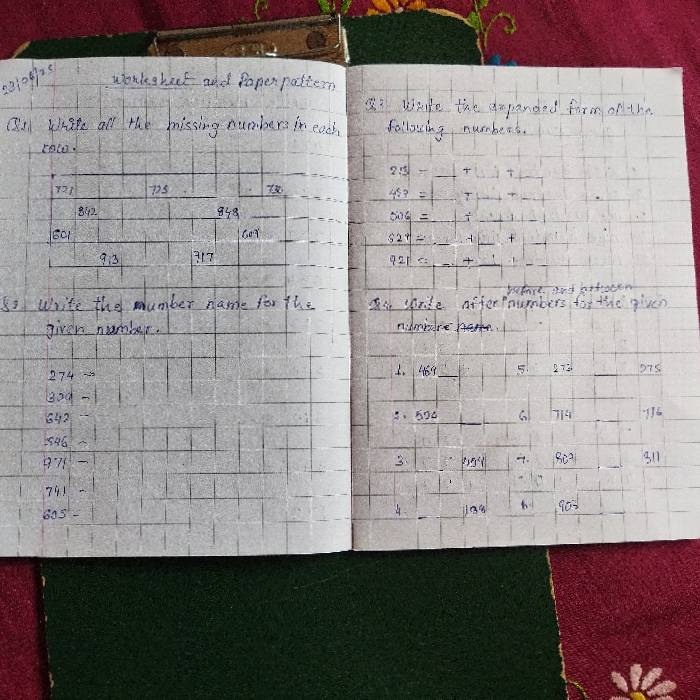 23/04/25
Worksheet and Paper pattern
Q.1 Write all the missing numbers in each
row.
721 725 730
842 848
601 609
913 717
Q.2 Write the number name for the
given number.
274 -
399 -
642 -
546 -
971 -
741 -
605 -
Q.3 Write the expanded form of the
following numbers.
213 = __ + __ + __
457 = __ + __ + __
506 = __ + __ + __
827 = __ + __ + __
921 = __ + __ + __
before and between
Q.4 Write after numbers for the given
number
1. 469 __ 5. 273 __ 275
2. 590 __ 6. 714 __ 716
3. __ 994 7. 809 __ 811
4. __ 199 8. 905